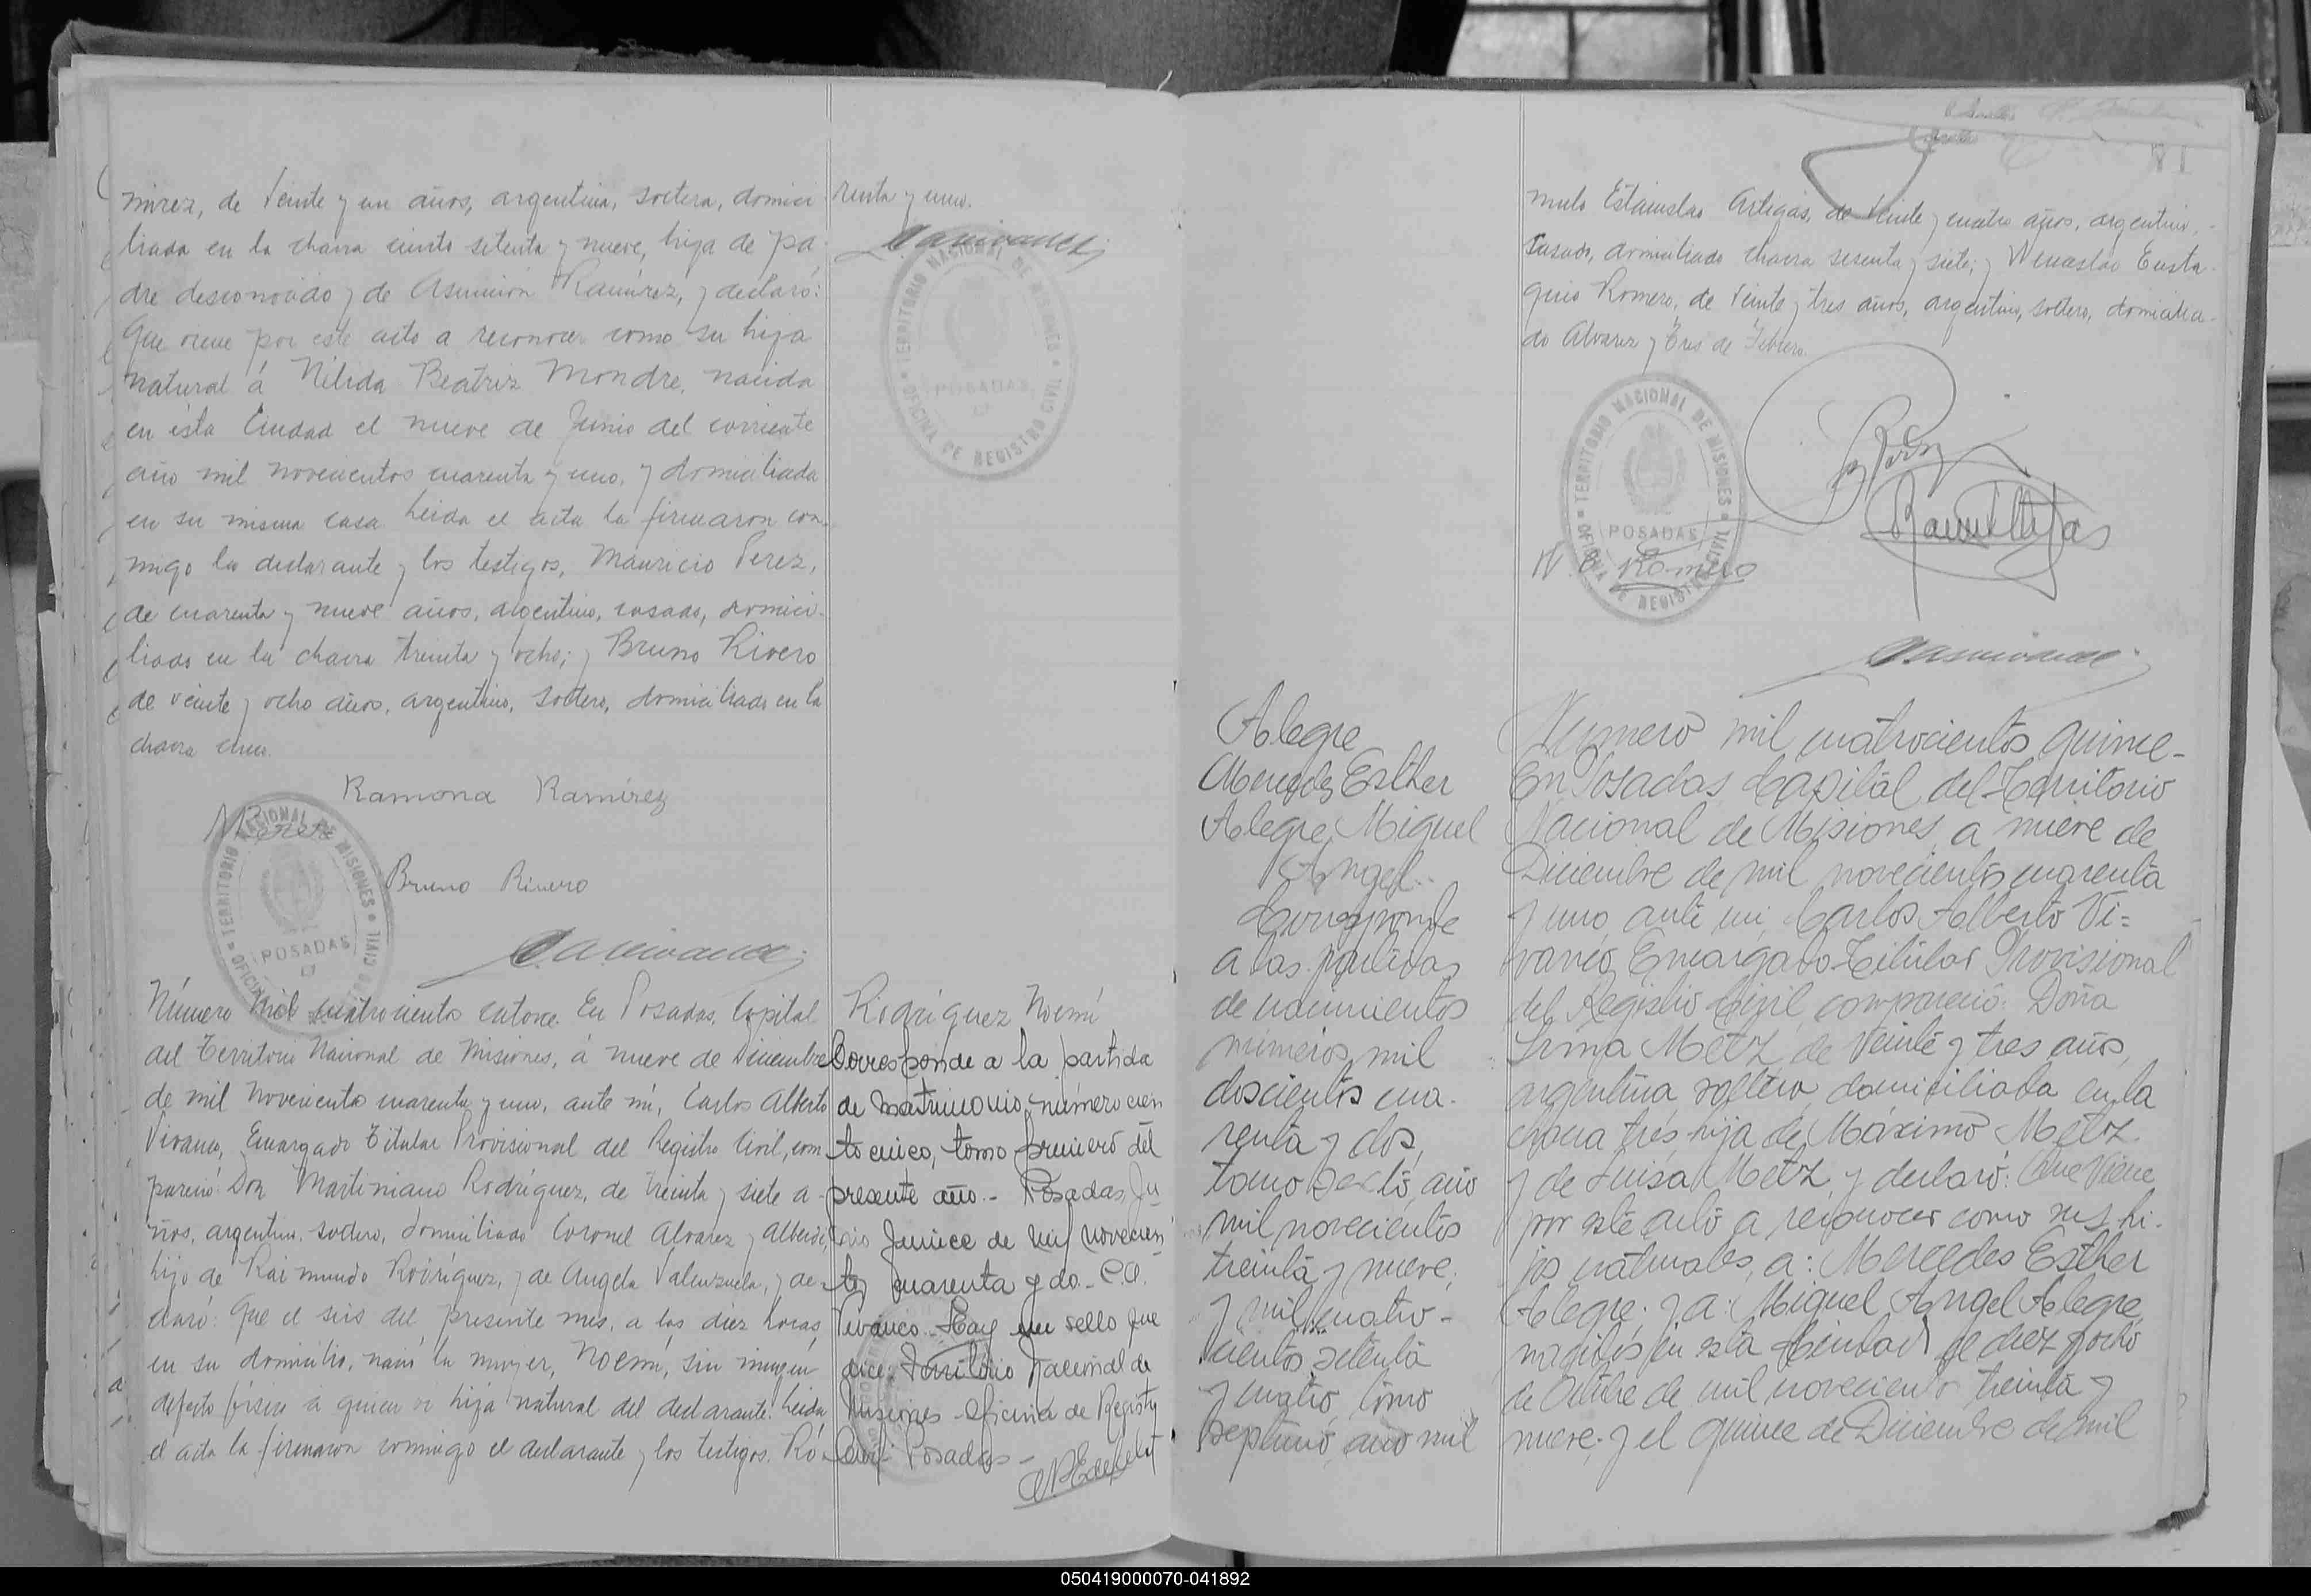 mirez, de veinte y un años, argentina, soltera, domici
liada en la chacra ciento setenta y nueve, hija de pa
dre desconocido y de Asunción Ramirez, y declaró:
Que viene por este acto a reconocer como su hija
natural á Nélida Beatriz Mondre, nacida
en ésta Ciudad el nueve de Junio del corriente
año mil novecientos cuarenta y uno, y domiciliada
en su misma casa. Leida el acta la firmaron con
migo la declarante y los testigos, Mauricio Perez,
de cuarenta y nueve años, argentino, casado, domici-
liado en la chacra treinta y ocho; y Bruno Rivero
de veinte y ocho años, argentino, soltero, domiciliado en la
chacra
Ramona Ramírez
MPerez
Bruno Rivero
TERRITORIO NACIONAL DE MISIONES
POSADAS
renta y uno.
TERRITORIO NACIONAL DE MISIONES
POSADAS
OFICINA DE REGISTRO CIVIL
Número mil cuatrociento catorce. En Posadas, Capital
del Territorio Nacional de Misiones, á nueve de Diciembre
de mil novecientos cuarenta y uno, ante mí, Carlos Alberto
Vivanco, Encargado Titular Provisional del Registro Civil, com
pareció Don Martiniano Rodríguez, de treinta y siete a-
ños, argentino, soltero, domiciliado Coronel Alvarez y Alberdi,
hijo de Raimundo Rodríguez, y de Angela Valenzuela, y de-
claró: Que el seis del presente mes, a las diez horas,
en su domicilio, nació la mujer, Noemí, sin ningún
defecto físico á quien es hija natural del declarante. Leida
el acta la firmaron conmigo el declarante y los testigos. Ró-
Rodríguez Noemí
Corresponde a la partida
de matrimonio número cien
to cinco, tomo primero del
presente año.- Posadas, Ju
nio quince de mil novecien
tos cuarenta y do- C.A.
Vivanco.- Hay un sello que
dice: Territorio Nacional de
Misiones - Oficina de Registro
Civil- Posadas-
mulo Estanislao Artigas, de veinte y cuatro años, argentino,-
casado, domiciliado chacra sesenta y siete; y Wenceslao Eusta-
quio Romero, de veinte y tres años, argentino, soltero, domicilia-
do Alvarez y Tres de Febrero.
TERRITORIO NACIONAL DE MISIONES
POSADAS
OFICINA DE REGISTRO CIVIL
W. E. Romero
Alegre
Mercedes Esther
Alegre, Miguel
Angel.-
Corresponde
a las partidas
de nacimientos
números mil
doscientos cua-
renta y dos,
tomo sexto, año
mil novecientos
treinta y nueve;
y mil cuatro-
cientos setenta
y cuatro, tomo
septimo, año mil
Número mil cuatrocientos quince-
En Posadas Capital del Territorio
Nacional de Misiones, a nueve de
Diciembre de mil novecientos cuarenta
y uno, ante mi, Carlos Alberto Vi=
vanco, Encargado Titular Provisional
del Registro Civil, compareció: Doña
Irma Metz, de veinte y tres años,
argentina, soltera, domiciliada en la
chacra tres, hija de Máximo Metz
y de Luisa Metz, y declaró: Que viene
por este acto a reconocer como sus hi-
jos naturales, a: Mercedes Esther
Alegre; y a: Miguel Angel Alegre,
nacidos en esta Ciudad el diez y ocho
de Octubre de mil novecientos treinta y
nueve; y el quince de Diciembre de mil
050419000070-041892